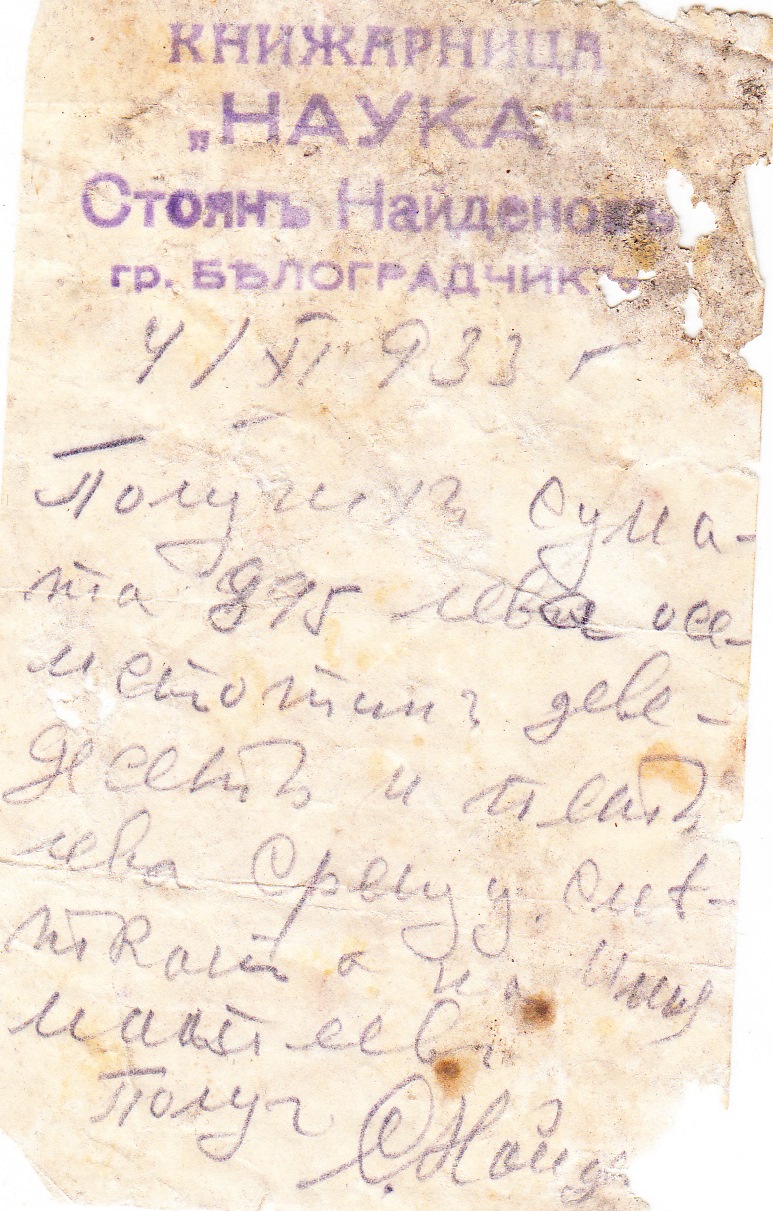 КНИЖАРНИЦА
„НАУКА“
Стоянъ Найденовъ
гр. БѢЛОГРАДЧИКЪ
4/XI 933 г
Получихъ сума-
та 895 лева осе-
мстотинъ деве-
десетъ и петь
лева срещу смѣ-
тката на
Получ
С. Найд